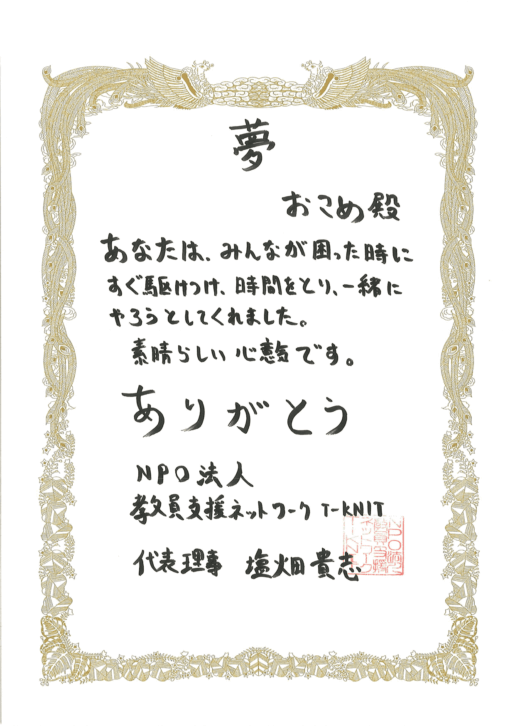 夢
おこめ殿
あなたは、みんなが困った時に
すぐ駆けつけ、時間をとり、一緒に
やろうとしてくれました。
素晴らしい心意気です。
ありがとう
NPO法人
教員支援ネットワーク T-KNIT
代表理事 塩畑貴志